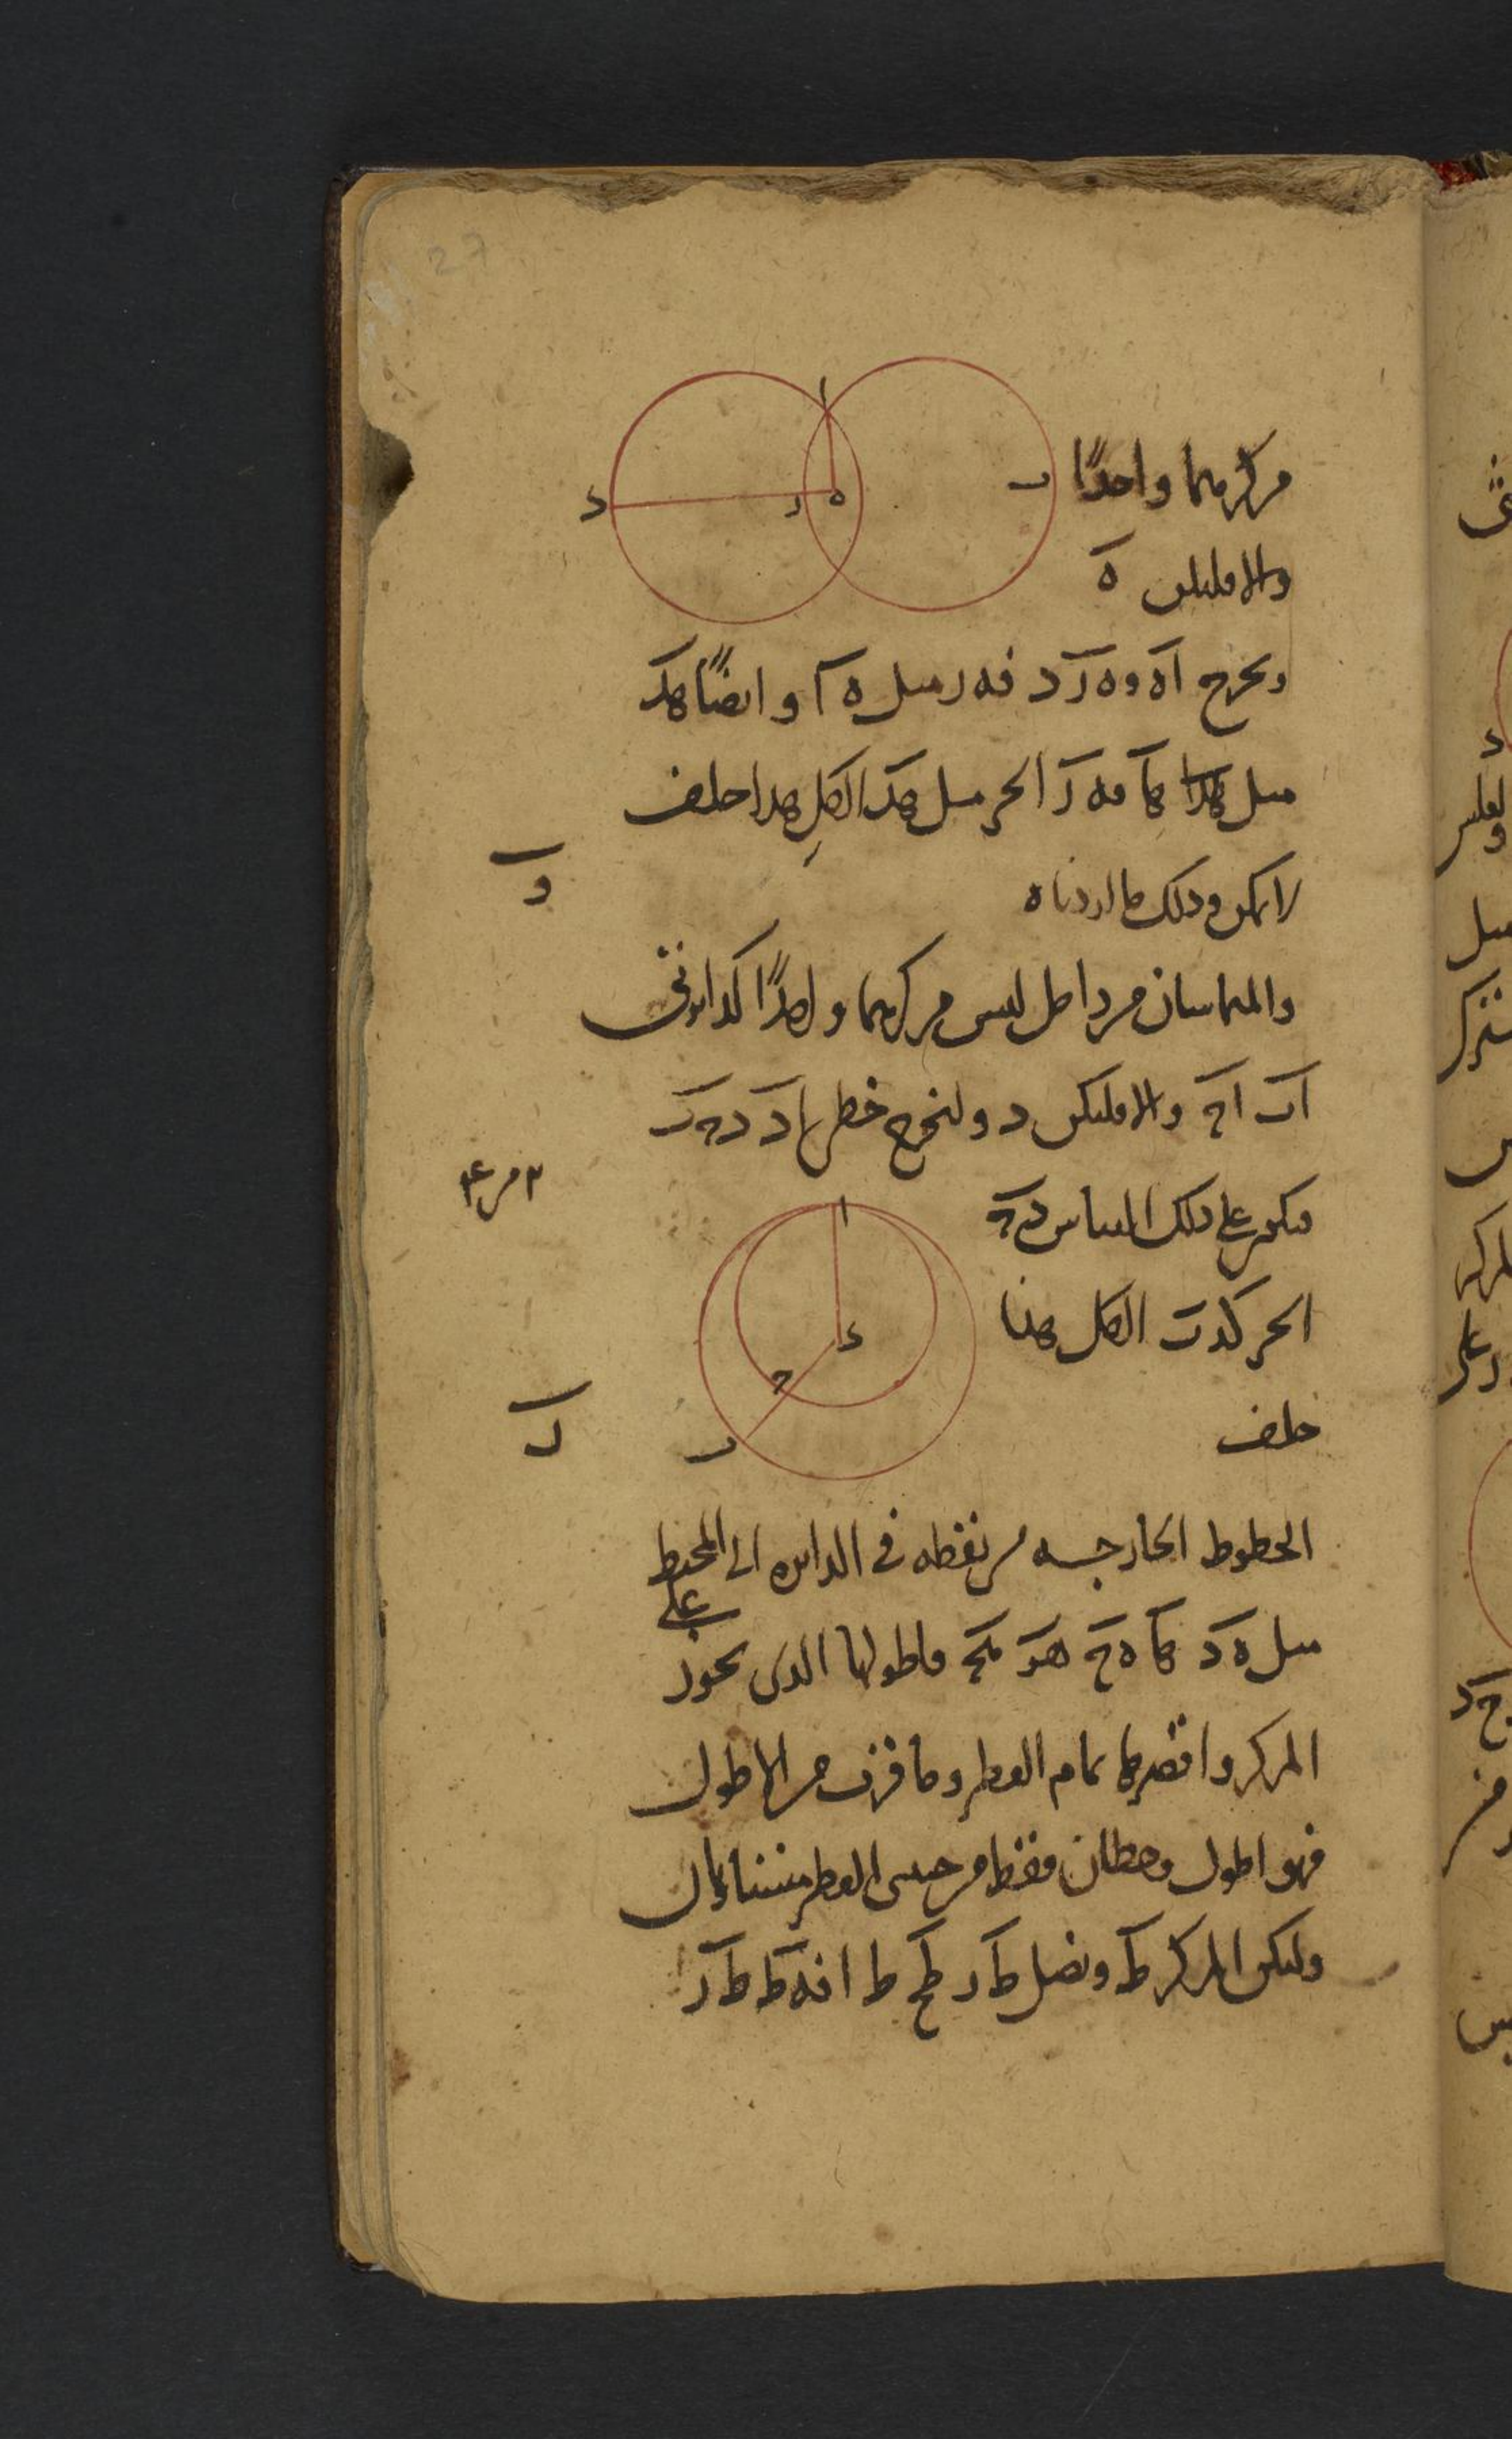 27
ا
د ر ه ب
مركزهما واحدًا
والا فليكن ه
ونخرج اه وه ر د فه ر مثل ه ا وايضًا هد
مثل ها فه ر الجزء مثل هد الكل هذا خلف
لا يمكن وذلك ما اردناه
و
والمتماسان من داخل ليس مركزهما واحدًا كدائرتي
اب اح والا فليكن د ولنخرج خطي اد د ح ب
فيكون على ذلك القياس د ح
ا
الجزء كدب الكل هذا
د
ح
خلف
ب
ز
الخطوط الخارجة من نقطه في الدايره الى المحيط
مثل ه د ها ه ح فاطولها الذي يجوز على
المركز واقصرها تمام القطر وما قرب من الاطول
فهو اطول وخطان فقط من جنبتي القطر متساويان
وليكن المركز ط ونصل ط ر ط ح ط ا فه ط ط ر